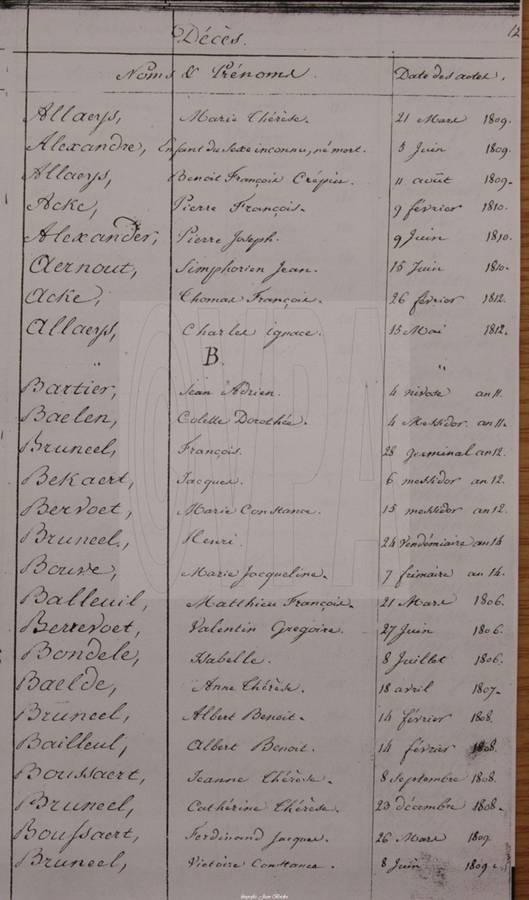 12
Décès.
Noms & Prénoms. Date des actes.
Allaeys, Marie Thérèse. 21 Mars 1809.
Alexandre, Enfant du sexe inconnu, né mort. 5 Juin 1809.
Allaeys, Benoit François Crépin. 11 août 1809.
Acke, Pierre François. 9 février 1810.
Alexander, Pierre Joseph. 9 Juin 1810.
Aernout, Simphorien Jean. 15 Juin 1810.
Acke, Thomas François. 26 février 1812.
Allaeys, Charles ignace. 15 Mai 1812.
" B. "
Bartier, Jean Adrien. 4 nivose an 11.
Baelen, Colette Dorothée. 4 Messidor an 11.
Bruneel, François. 28 germinal an 12.
Bekaert, Jacques. 6 messidor an 12.
Bervoet, Marie Constance. 15 messidor an 12.
Bruneel, Henri. 24 Vendémiaire an 14
Bouve, Marie Jacqueline. 7 frimaire an 14.
Balleuil, Matthieu François. 21 Mars 1806.
Berrevoet, Valentin Gregoire. 27 Juin 1806.
Bondele, Isabelle. 8 Juillet 1806.
Baelde, Anne Thérèse. 18 avril 1807.
Bruneel, Albert Benoit. 14 février 1808.
Bailleul, Albert Benoit. 14 février 1808.
Boussaert, Jeanne Thérèse. 8 Septembre 1808.
Bruneel, Cathérine Thérèse. 23 décembre 1808.
Boussaert, Ferdinand Jacques. 26 Mars 1809
Bruneel, Victoire Constance. 8 Juin 1809.